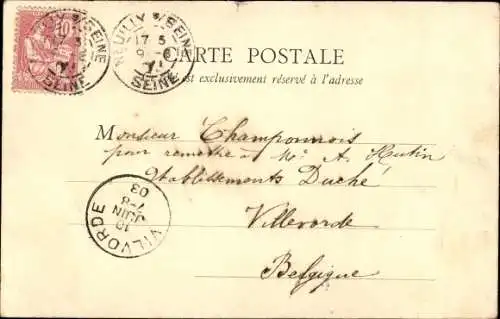 NEUILLY S/SEINE
SEINE
NEUILLY S/SEINE
17 5
SEINE
CARTE POSTALE
est exclusivement réservé à l'adresse
Monsieur Champonnois
pour remettre à Mr A. Hutin
Etablissements Duché
VILVORDE
10
JUIN
7-8
03
Villevorde
Belgique